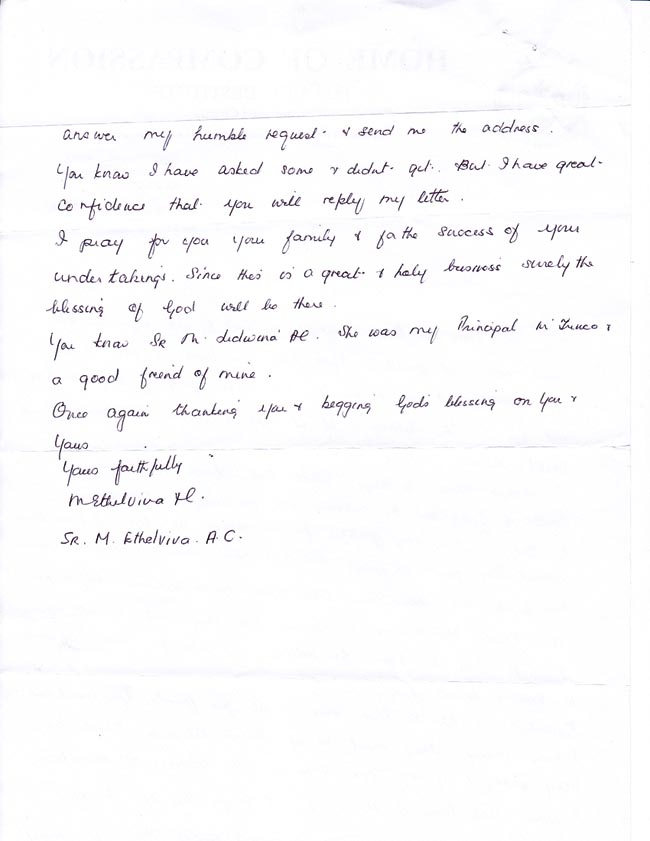 answer my humble request & send me the address.
You know I have asked some & didnt get. But I have great
Confidence that you will reply my letter.
I pray for you your family & fa the success of your
undertakings. Since this is a great & holy business surely the
blessing of God will be there.
You know Sr M. AC. She was my Principal in &
a good friend of mine.
Once again thanking you & begging God's blessing on you &
Yours
Yours faithfully
M Ethelviva AC.
SR. M. Ethelviva. A.C.